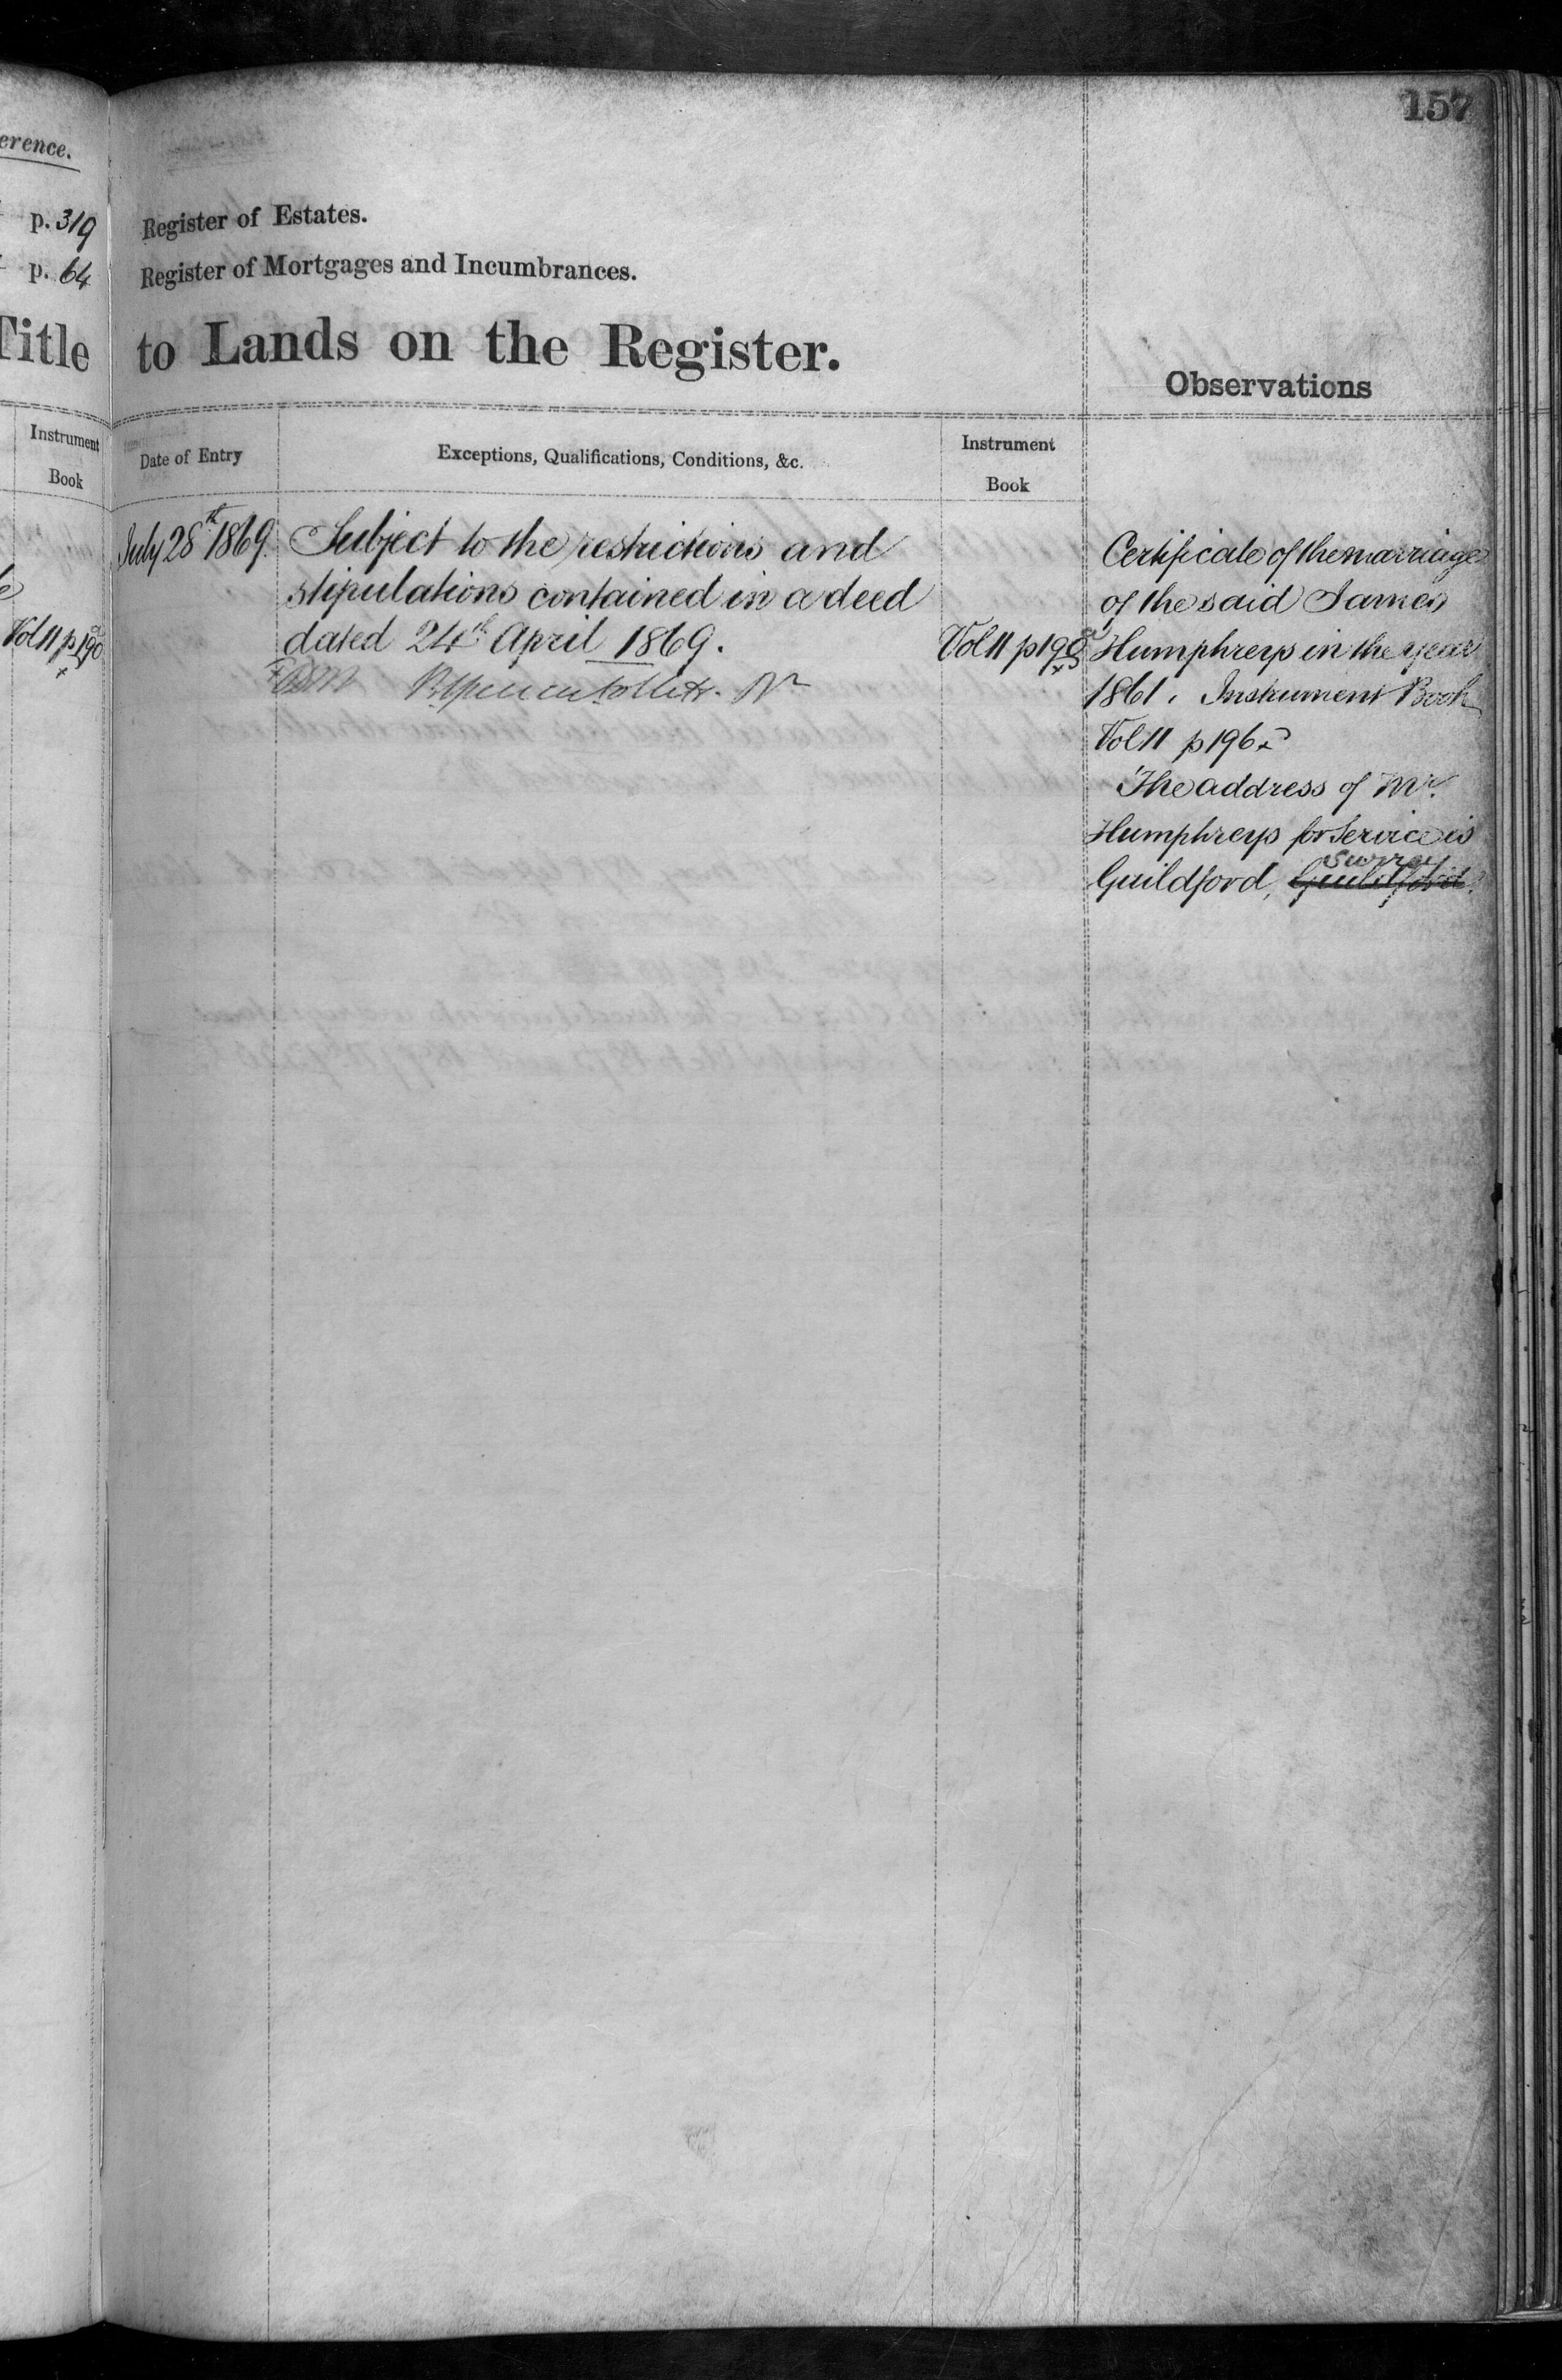 157
erence.
p. 319
p. 64
Title
Instrument
Book
Vol 11 p 190
Register of Estates.
Register of Mortgages and Incumbrances.
to Lands on the Register.
Observations
Date of Entry
Exceptions, Qualifications, Conditions, &c.
Instrument
Book
July 28th 1869.
Subject to the restrictions and
stipulations contained in a deed
dated 24th April 1869.
Vol 11 p 190
Certificate of the marriage
of the said James
Humphreys in the year
1861. Instrument Book
Vol 11 p 196
The address of Mr.
Humphreys for Service is
Surrey
Guildford, Guildford.